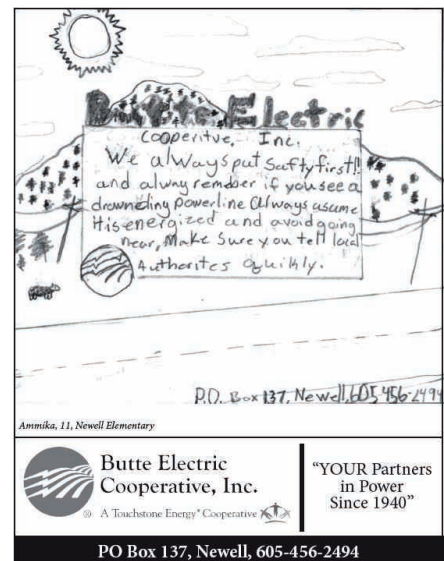 Butte Electric
cooperitve, Inc.
We always put saftyfirst!!
and alwny remeber if you see a
drowneding powerline always asume
Hisenergized and avoid going
near, Make Sure you tell local
Authorites quikly.
P.O. Box 137, Newell, 605-456-2494
Ammika, 11, Newell Elementary
Butte Electric
Cooperative, Inc.
® A Touchstone Energy® Cooperative
“YOUR Partners
in Power
Since 1940”
PO Box 137, Newell, 605-456-2494